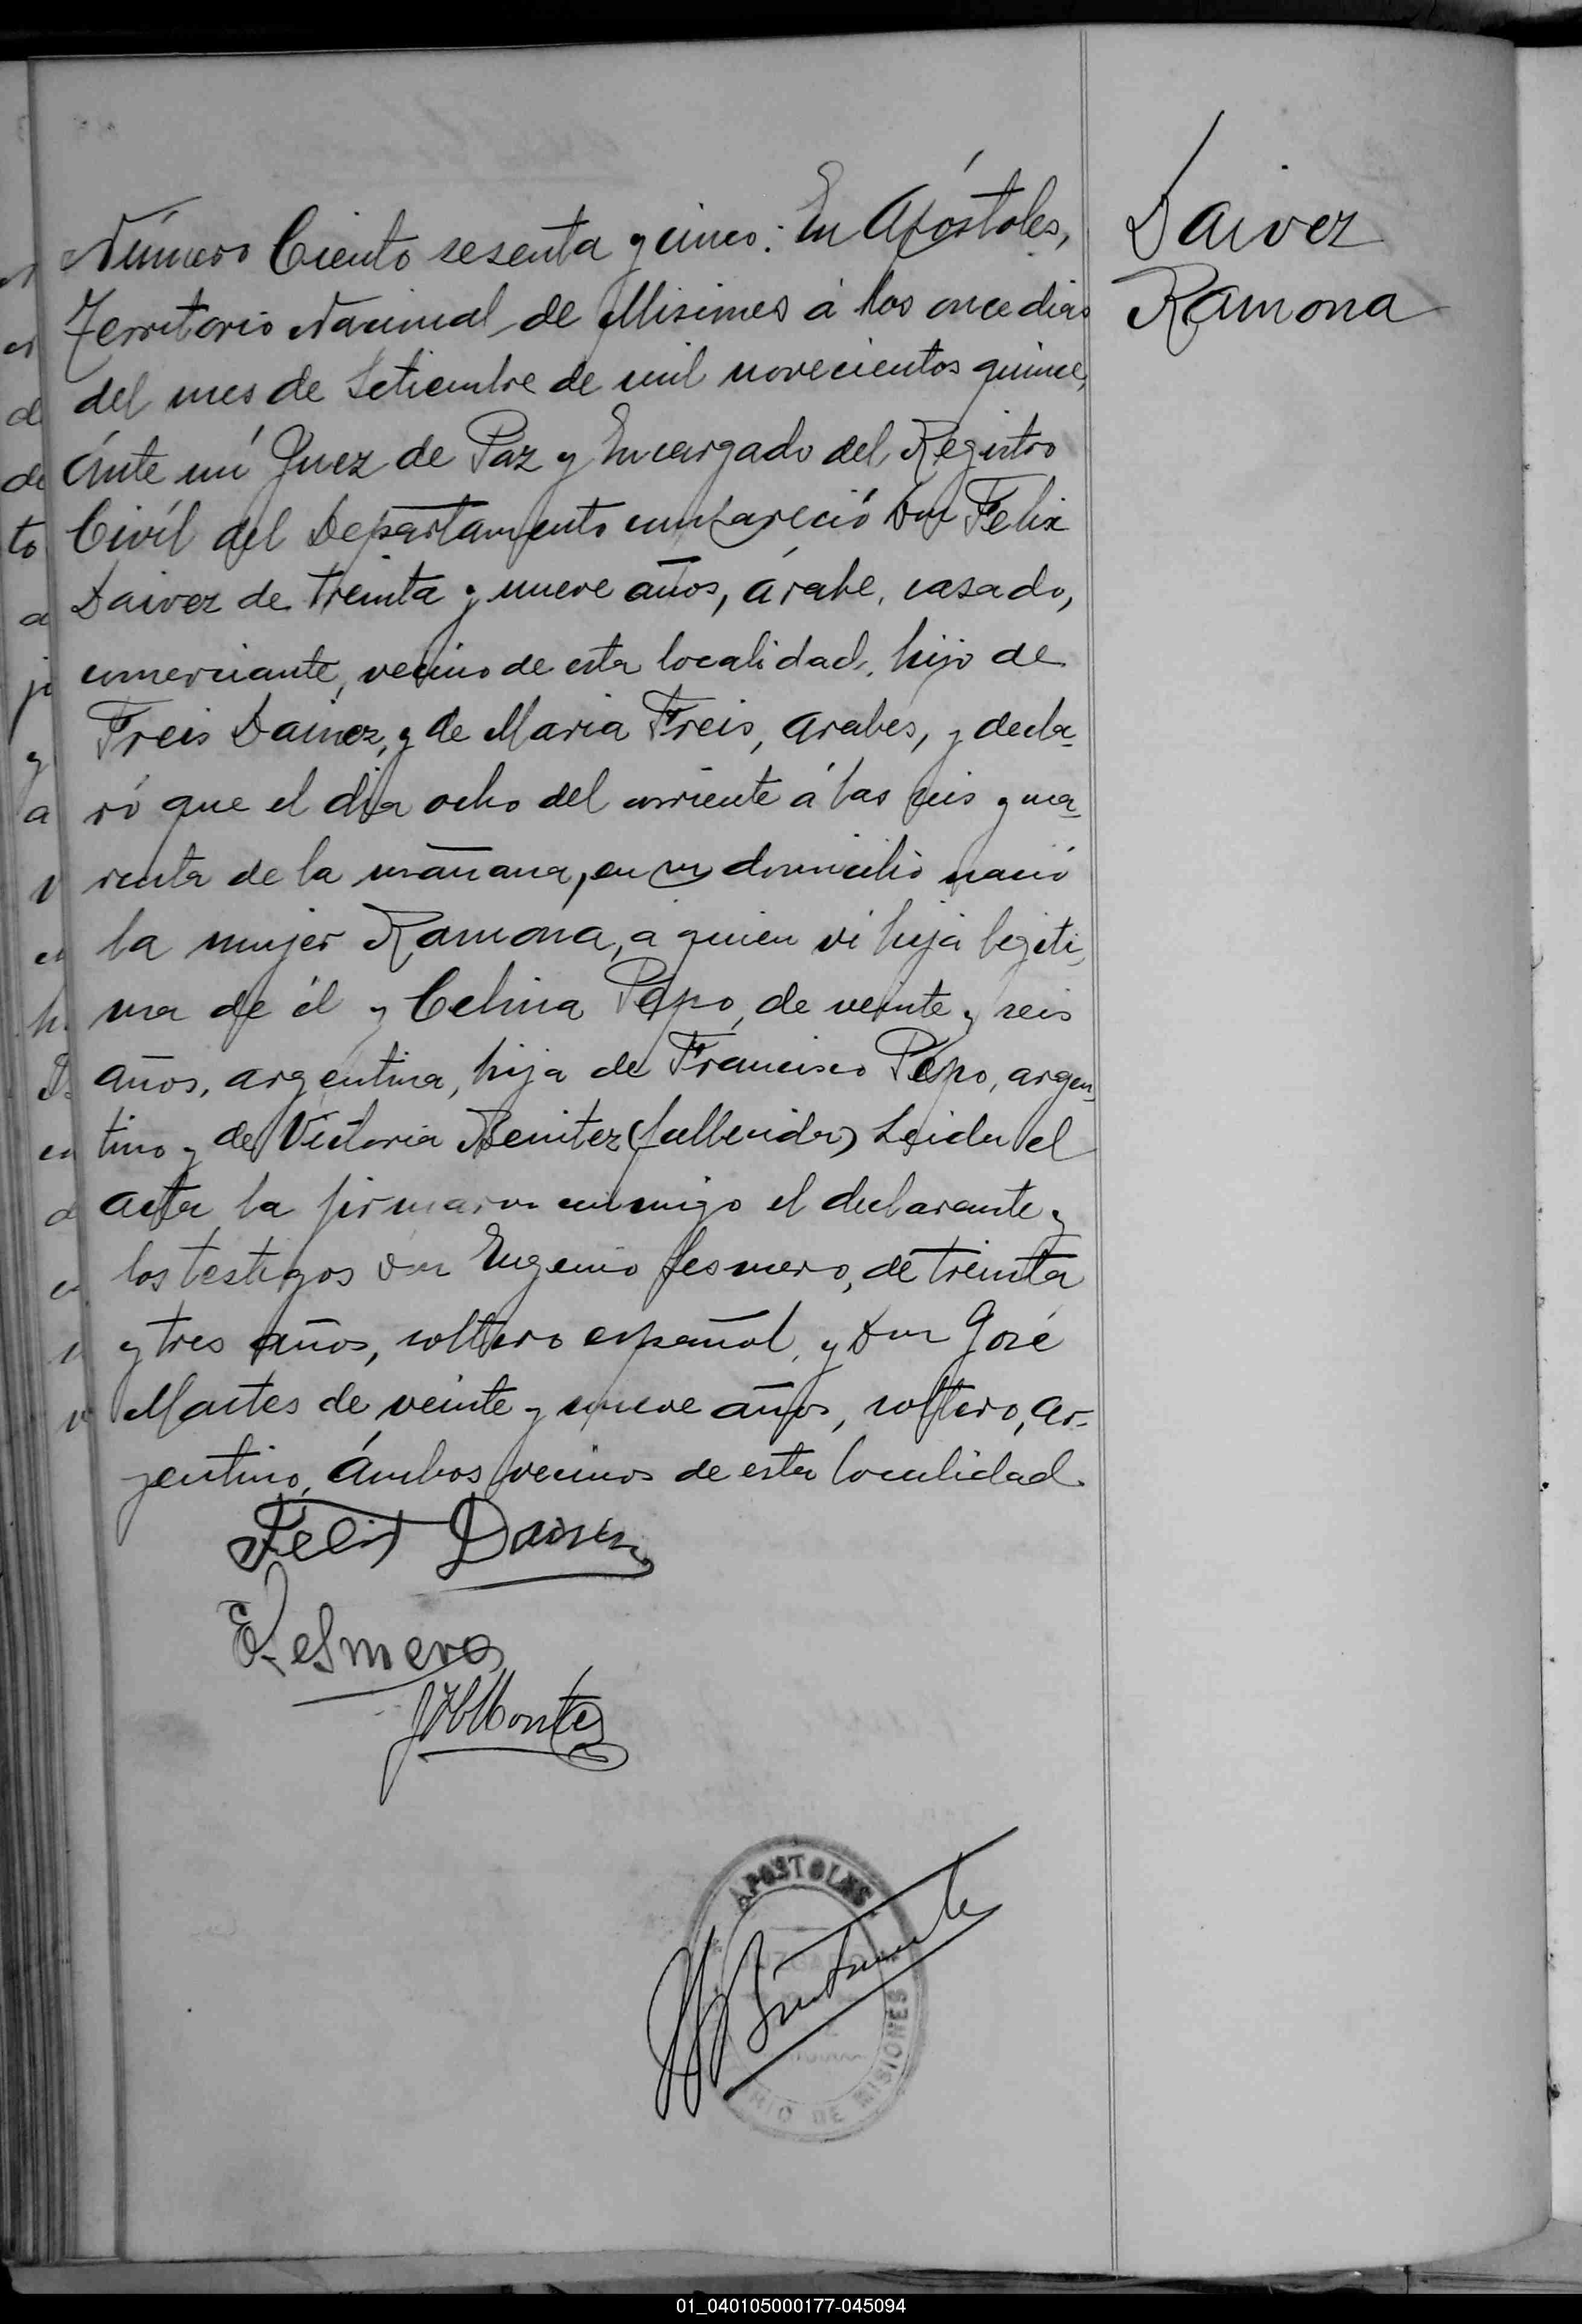 Número Ciento sesenta y cinco: En Apóstoles,
Territorio Nacional de Misiones á los once dias
del mes de Setiembre de mil novecientos quince,
Ánte mí Juez de Paz y Encargado del Registro
Civíl del Departamento compareció Don Felix
Daivez de treinta y nueve años, árabe, casado,
comerciante, vecino de esta localidad, hijo de
Freis Daivez, y de Maria Freis, arabes, y decla-
ró que el dia ocho del corriente á las seis y cua-
renta de la mañana, en su domicilio nació
la mujer Ramona, a quien vi hija legiti-
ma de él y Celina Pepo, de veinte y seis
años, argentina, hija de Francisco Pepo, argen-
tino y de Victoria Benitez (fallecida) Leida el
acta la firmaron conmigo el declarante y
los testigos don Eugenio Lesmero, de treinta
y tres años, soltero español, y Don José
Montes de veinte y nueve años, soltero, ar-
gentino, Ámbos vecinos de esta localidad.
Felix Daivez
E. Lesmero
Montes
APOSTOLES
DE MISIONES
Daivez
Ramona
01_040105000177-045094